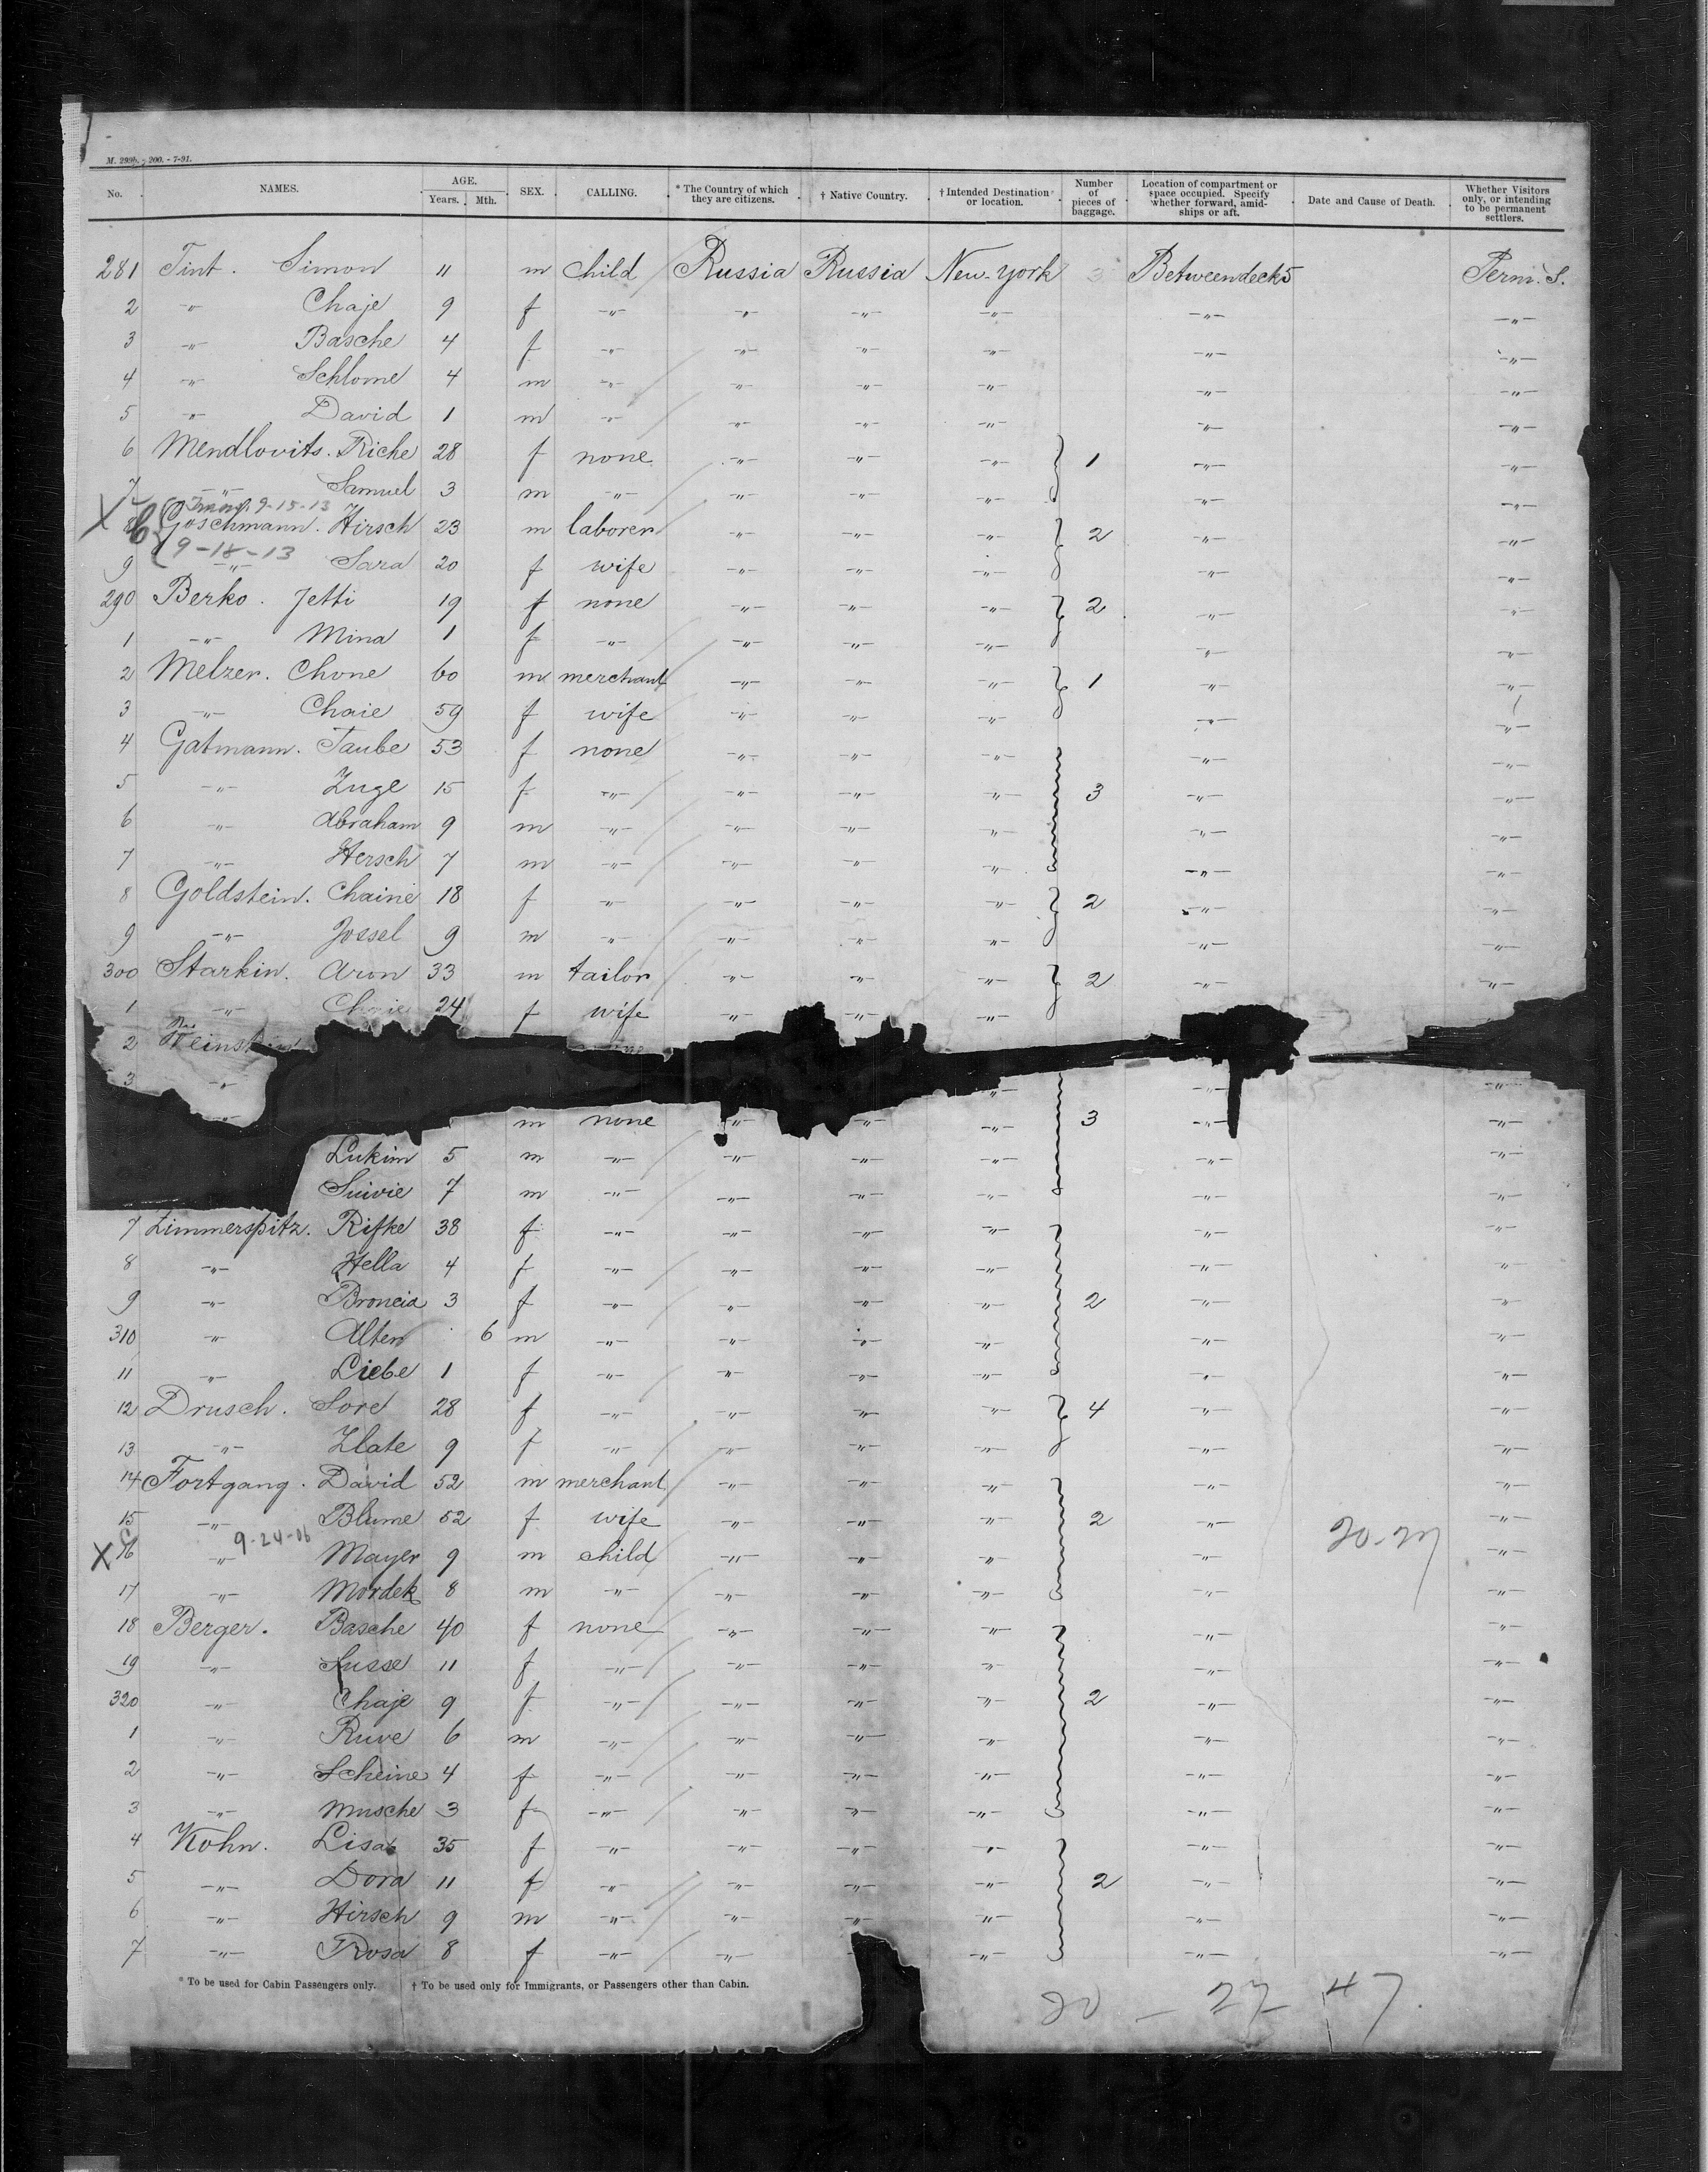 M. 299b. - 200. - 7-91.
No. NAMES. AGE. Years. Mth. SEX. CALLING. * The Country of which they are citizens. † Native Country. † Intended Destination or location. Number of pieces of baggage. Location of compartment or space occupied. Specify whether forward, amidships or aft. Date and Cause of Death. Whether Visitors only, or intending to be permanent settlers.
281 Tint. Simon 11 m child Russia Russia New-York 3 Betweendecks Perm. S.
2 -"- Chaje 9 f -"- -"- -"- -"- -"- -"-
3 -"- Basche 4 f -"- -"- -"- -"- -"- -"-
4 -"- Schlome 4 m -"- -"- -"- -"- -"- -"-
5 -"- David 1 m -"- -"- -"- -"- -"- -"-
6 Mendlovits. Riche 28 f none -"- -"- -"- 1 -"- -"-
7 -"- Samuel 3 m -"- -"- -"- -"- -"- -"-
9-15-13
X 8 Goschmann. Hirsch 23 m laborer -"- -"- -"- 2 -"- -"-
9-18-13
9 -"- Sara 20 f wife -"- -"- -"- -"- -"-
290 Berko. Jetti 19 f none -"- -"- -"- 2 -"- -"-
1 -"- Mina 1 f -"- -"- -"- -"- -"- -"-
2 Melzer. Chone 60 m merchant -"- -"- -"- 1 -"- -"-
3 -"- Chaie 59 f wife -"- -"- -"- -"- -"-
4 Gatmann. Taube 53 f none -"- -"- -"- -"- -"-
5 -"- Zuge 15 f -"- -"- -"- -"- 3 -"- -"-
6 -"- Abraham 9 m -"- -"- -"- -"- -"- -"-
7 -"- Hersch 7 m -"- -"- -"- -"- -"- -"-
8 Goldstein. Chaine 18 f -"- -"- -"- -"- 2 -"- -"-
9 -"- Jossel 9 m -"- -"- -"- -"- -"- -"-
300 Starkin. Aron 33 m tailor -"- -"- -"- 2 -"- -"-
1 -"- Chaie 24 f wife -"- -"- -"-
2 Weinstein
3 -"- -"- -"- -"-
-"- m none -"- -"- -"- 3 -"- -"-
Lukim 5 m -"- -"- -"- -"- -"- -"-
Suivie 7 m -"- -"- -"- -"- -"- -"-
7 Zimmerspitz. Rifke 38 f -"- -"- -"- -"- -"- -"-
8 -"- Hella 4 f -"- -"- -"- -"- -"- -"-
9 -"- Broncia 3 f -"- -"- -"- -"- 2 -"- -"-
310 -"- Alter 6 m -"- -"- -"- -"- -"- -"-
11 -"- Liebe 1 f -"- -"- -"- -"- -"- -"-
12 Drusch. Sore 28 f -"- -"- -"- -"- 4 -"- -"-
13 -"- Zlate 9 f -"- -"- -"- -"- -"- -"-
14 Fortgang. David 52 m merchant -"- -"- -"- -"- -"-
15 -"- Blume 52 f wife -"- -"- -"- 2 -"- -"-
9-24-06 20-27
X 16 -"- Mayer 9 m child -"- -"- -"- -"- -"-
17 -"- Mordek 8 m -"- -"- -"- -"- -"- -"-
18 Berger. Basche 40 f none -"- -"- -"- -"- -"-
19 -"- Susse 11 f -"- -"- -"- -"- -"- -"-
320 -"- Chaje 9 f -"- -"- -"- -"- 2 -"- -"-
1 -"- Ruve 6 m -"- -"- -"- -"- -"- -"-
2 -"- Scheine 4 f -"- -"- -"- -"- -"- -"-
3 -"- Musche 3 f -"- -"- -"- -"- -"- -"-
4 Kohn. Lisa 35 f -"- -"- -"- -"- -"- -"-
5 -"- Dora 11 f -"- -"- -"- -"- 2 -"- -"-
6 -"- Hirsch 9 m -"- -"- -"- -"- -"- -"-
7 -"- Rosa 8 f -"- -"- -"- -"- -"-
* To be used for Cabin Passengers only. † To be used only for Immigrants, or Passengers other than Cabin.
20 - 27 47.